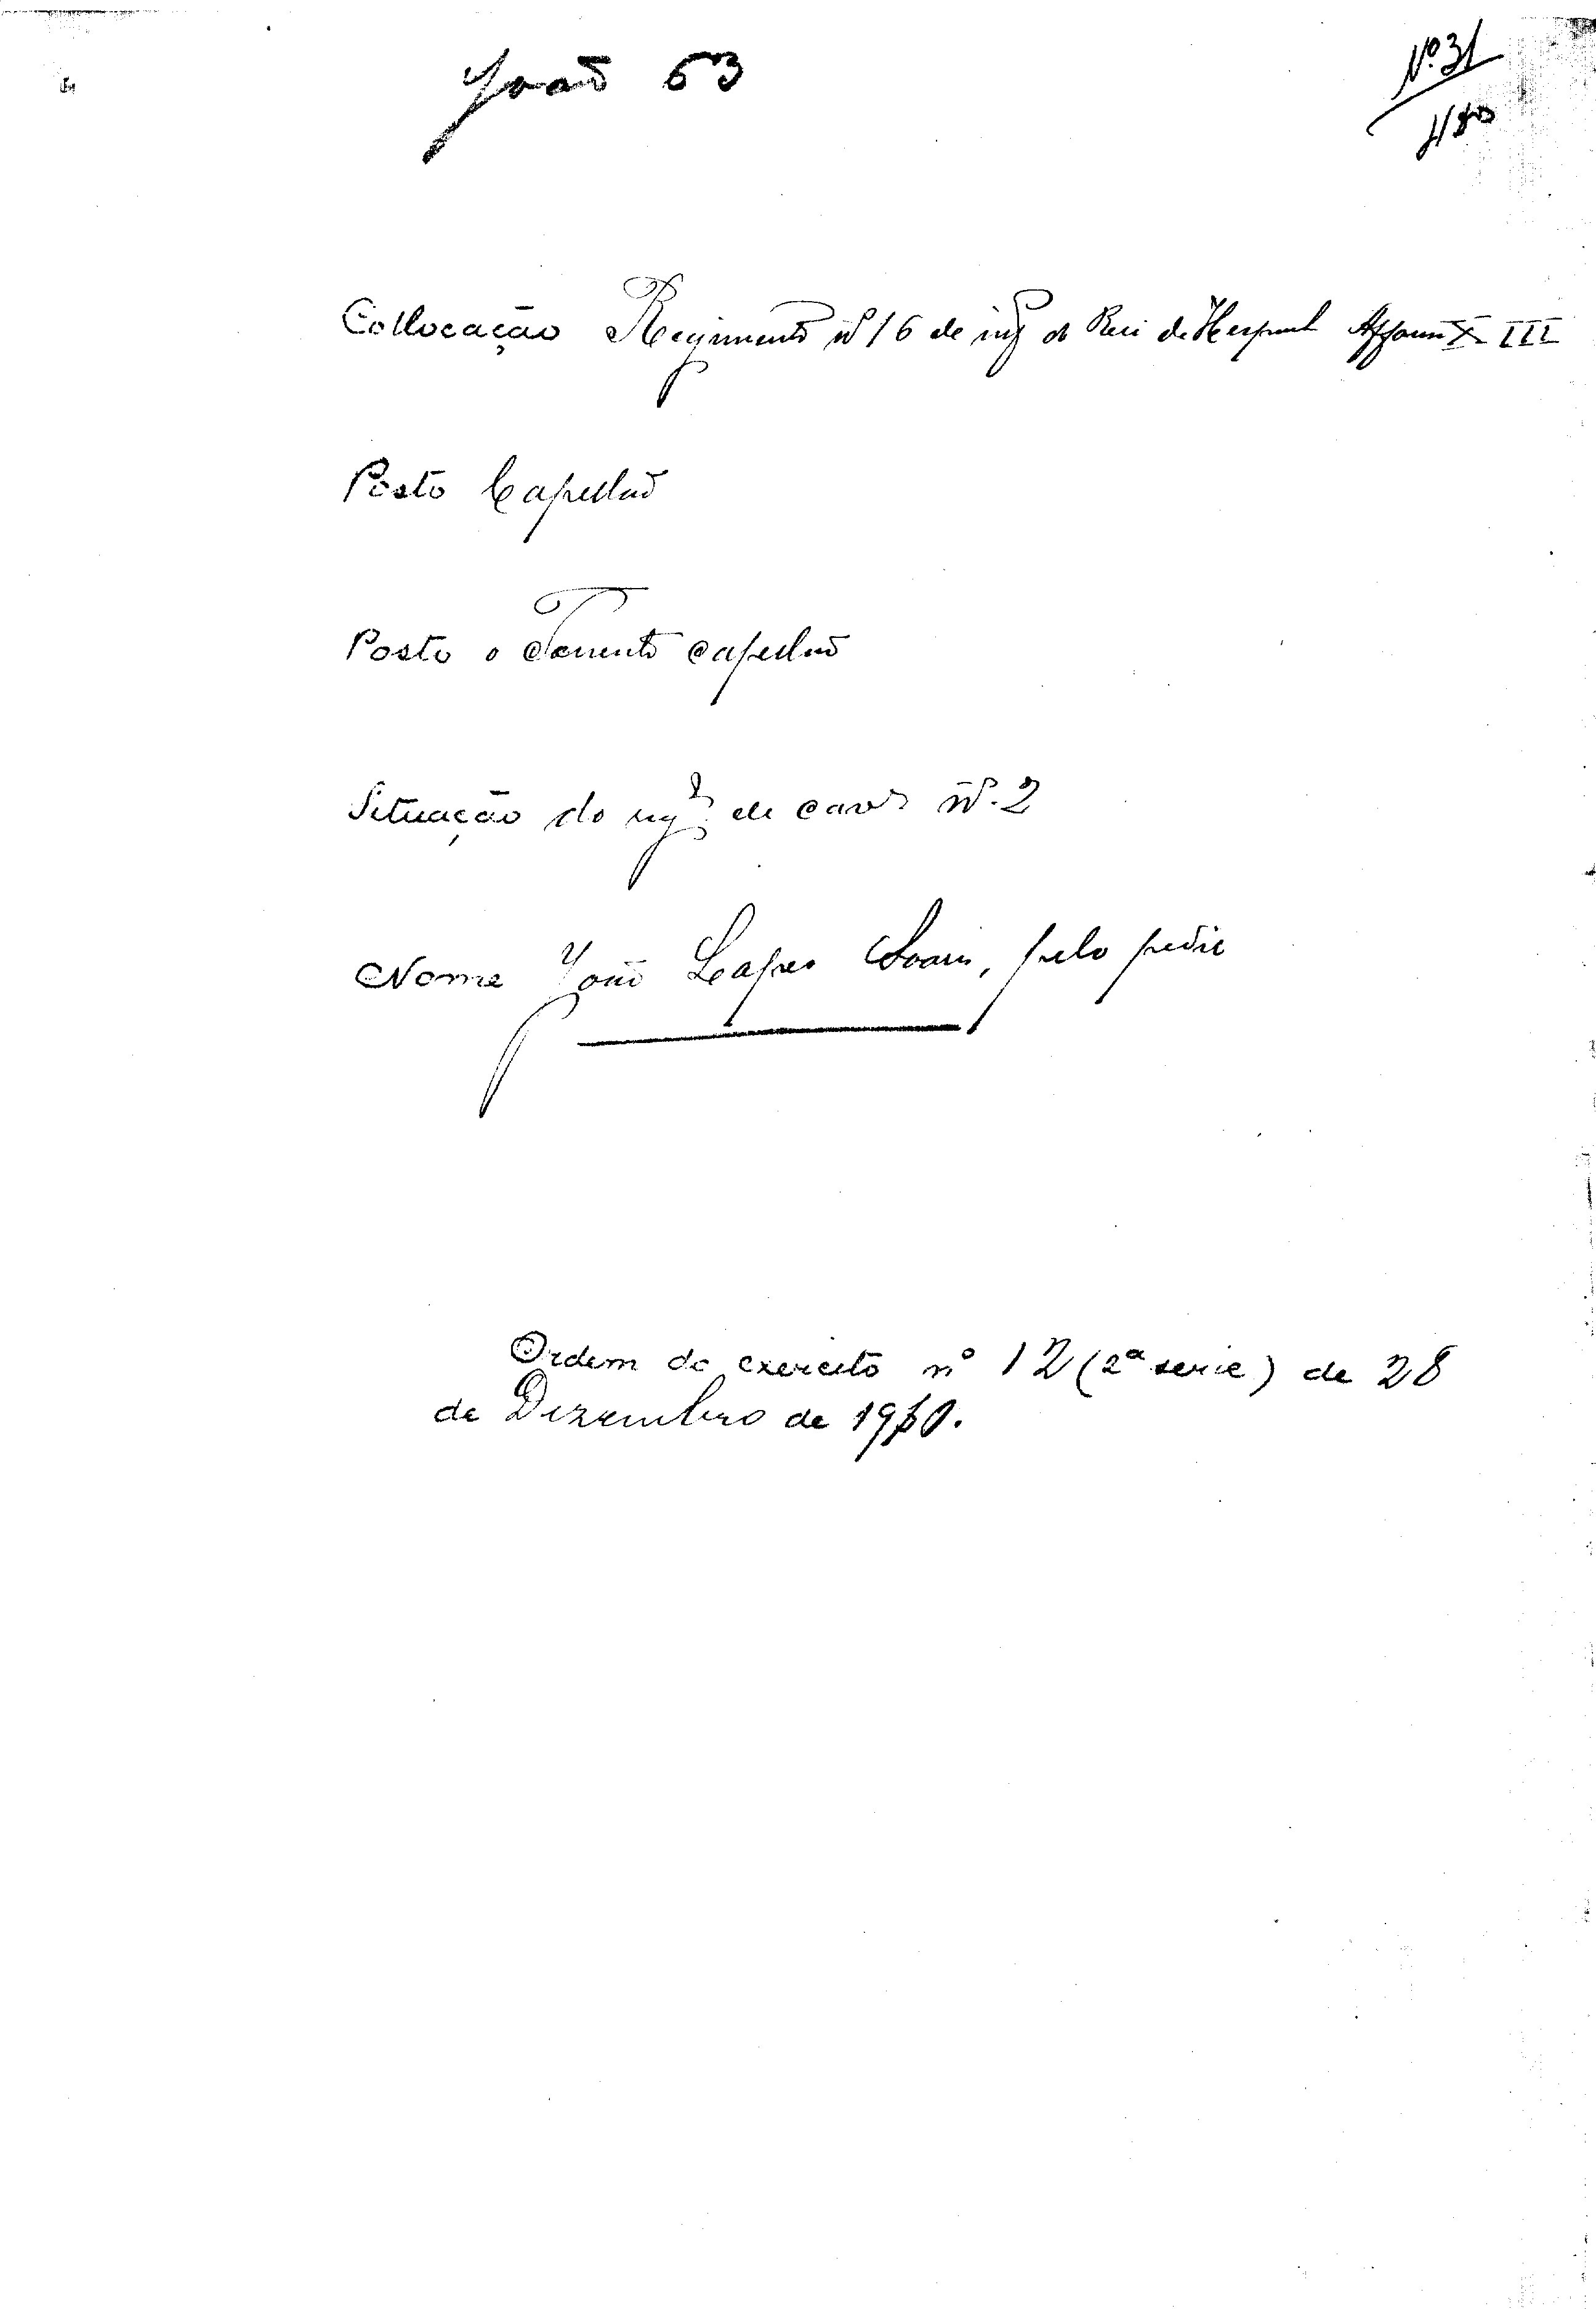 João 53
Nº 31
Collocação Regimento nº 16 de infª do Rei de Hespanha Affonso XIII
Posto Capellão
Posto o Tenente capellão
Situação do regº de cavª nº. 2
Nome João Lopes Soares, pelo pedir
Ordem do exercito nº 12 (2ª serie) de 28
de Dezembro de 1910.